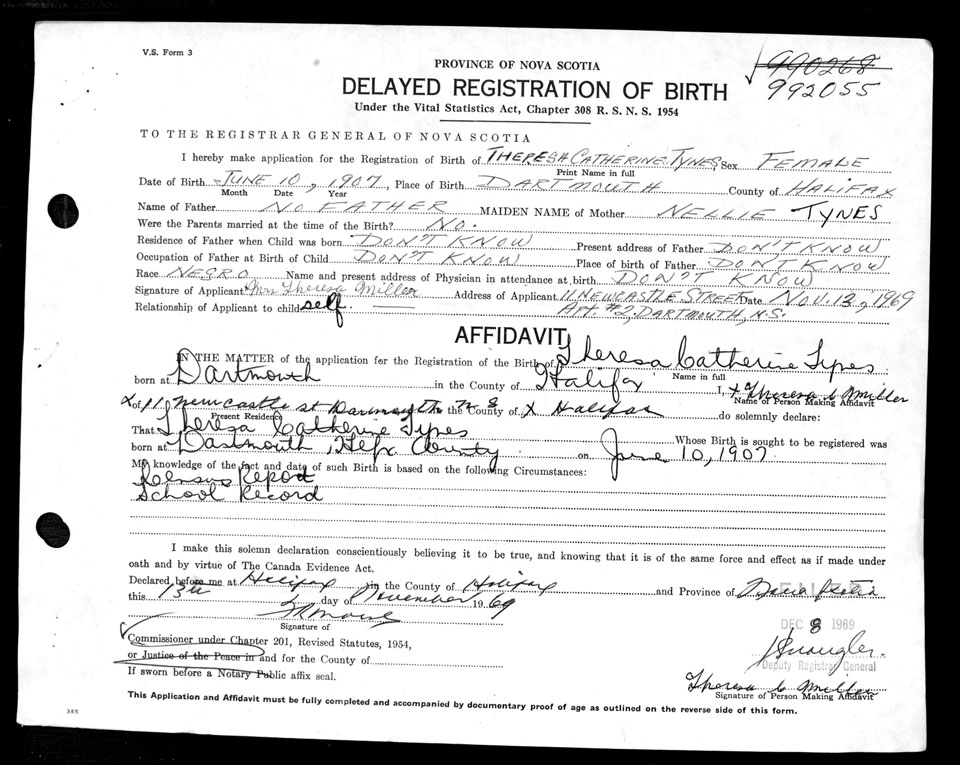 V.S. Form 3
990268
992055
PROVINCE OF NOVA SCOTIA
DELAYED REGISTRATION OF BIRTH
Under the Vital Statistics Act, Chapter 308 R. S. N. S. 1954
TO THE REGISTRAR GENERAL OF NOVA SCOTIA
I hereby make application for the Registration of Birth of THERESA CATHERINE TYNES Sex FEMALE
Print Name in full
Date of Birth JUNE 10, 1907, Place of Birth DARTMOUTH County of HALIFAX
Month Date Year
Name of Father NO FATHER MAIDEN NAME of Mother NELLIE TYNES
Were the Parents married at the time of the Birth? NO.
Residence of Father when Child was born DON'T KNOW Present address of Father DON'T KNOW
Occupation of Father at Birth of Child DON'T KNOW Place of birth of Father DON'T KNOW
Race NEGRO Name and present address of Physician in attendance at birth DON'T KNOW
Signature of Applicant Mrs Theresa Miller Address of Applicant 11 NEWCASTLE STREET Date NOV. 13, 1969
Relationship of Applicant to child self APT. #2, DARTMOUTH, N.S.
AFFIDAVIT
IN THE MATTER of the application for the Registration of the Birth of Theresa Catherine Tynes
Name in full
born at Dartmouth in the County of Halifax I, x Theresa C Miller
Name of Person Making Affidavit
x of 11 Newcastle st Dartmouth N S in the County of x Halifax do solemnly declare:
Present Residence
That Theresa Catherine Tynes Whose Birth is sought to be registered was
born at Dartmouth, Hfx County on June 10, 1907
My knowledge of the fact and date of such Birth is based on the following Circumstances:
Census Report
School Record
I make this solemn declaration conscientiously believing it to be true, and knowing that it is of the same force and effect as if made under
oath and by virtue of The Canada Evidence Act.
Declared before me at Halifax in the County of Halifax and Province of Nova Scotia
this 13th day of November 1969
FILED
DEC 8 1969
Signature of
Commissioner under Chapter 201, Revised Statutes, 1954,
or Justice of the Peace in and for the County of
Deputy Registrar General
If sworn before a Notary Public affix seal.
Theresa C Miller
Signature of Person Making Affidavit
This Application and Affidavit must be fully completed and accompanied by documentary proof of age as outlined on the reverse side of this form.
385